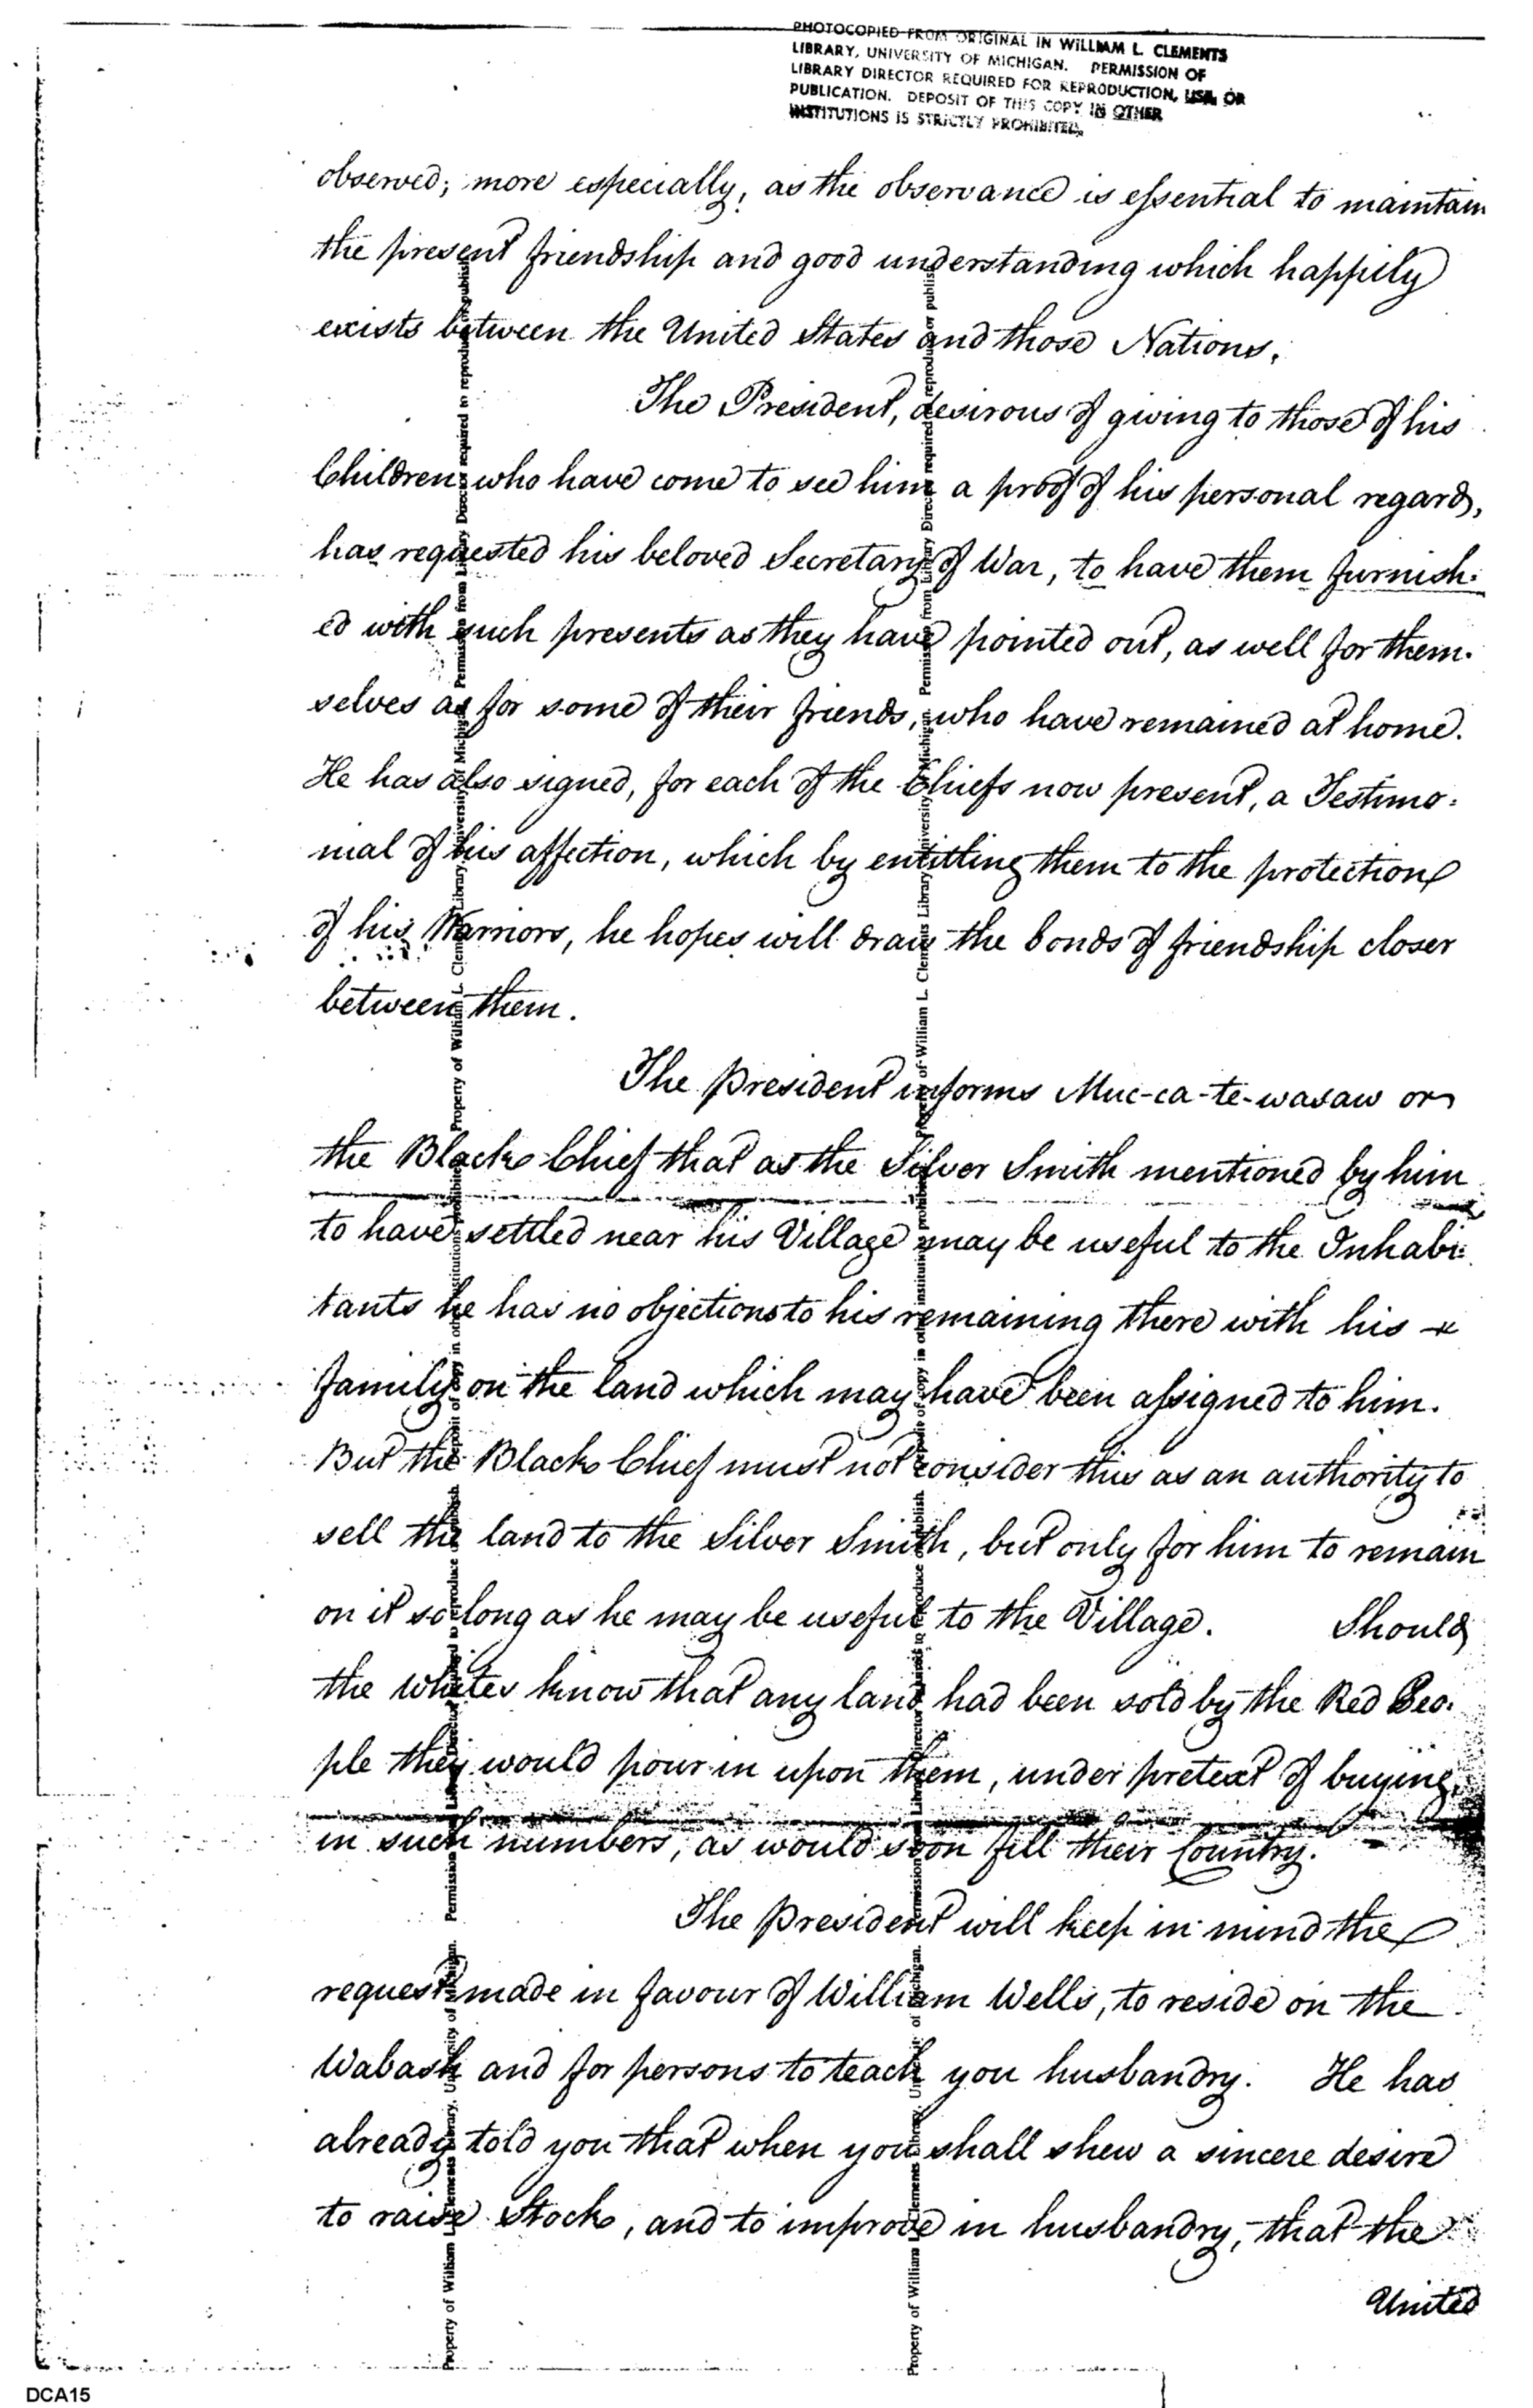 PHOTOCOPIED FROM ORIGINAL IN WILLIAM L. CLEMENTS
LIBRARY, UNIVERSITY OF MICHIGAN. PERMISSION OF
LIBRARY DIRECTOR REQUIRED FOR REPRODUCTION, USE, OR
PUBLICATION. DEPOSIT OF THIS COPY IN OTHER
INSTITUTIONS IS STRICTLY PROHIBITED.
observed; more especially, as the observance is essential to maintain
the present friendship and good understanding which happily
exists between the United States and those Nations.
The President, desirous of giving to those of his
Children who have come to see him a proof of his personal regard,
has requested his beloved Secretary of War, to have them furnish-
ed with such presents as they have pointed out, as well for them-
selves as for some of their friends, who have remained at home.
He has also signed, for each of the Chiefs now present, a Testimo-
nial of his affection, which by entitling them to the protection
of his Warriors, he hopes will draw the bonds of friendship closer
between them.
The President informs Muc-ca-te-wasaw or
the Black Chief that as the Silver Smith mentioned by him
to have settled near his Village may be useful to the Inhabi-
tants he has no objections to his remaining there with his
family on the land which may have been assigned to him.
But the Black Chief must not consider this as an authority to
sell the land to the Silver Smith, but only for him to remain
on it so long as he may be useful to the Village. Should
the Whites know that any land had been sold by the Red Peo-
ple they would pour in upon them, under pretext of buying,
in such numbers, as would soon fill their Country.
The President will keep in mind the
request made in favour of William Wells, to reside on the
Wabash and for persons to teach you husbandry. He has
already told you that when you shall shew a sincere desire
to raise Stock, and to improve in husbandry, that the
United
DCA15